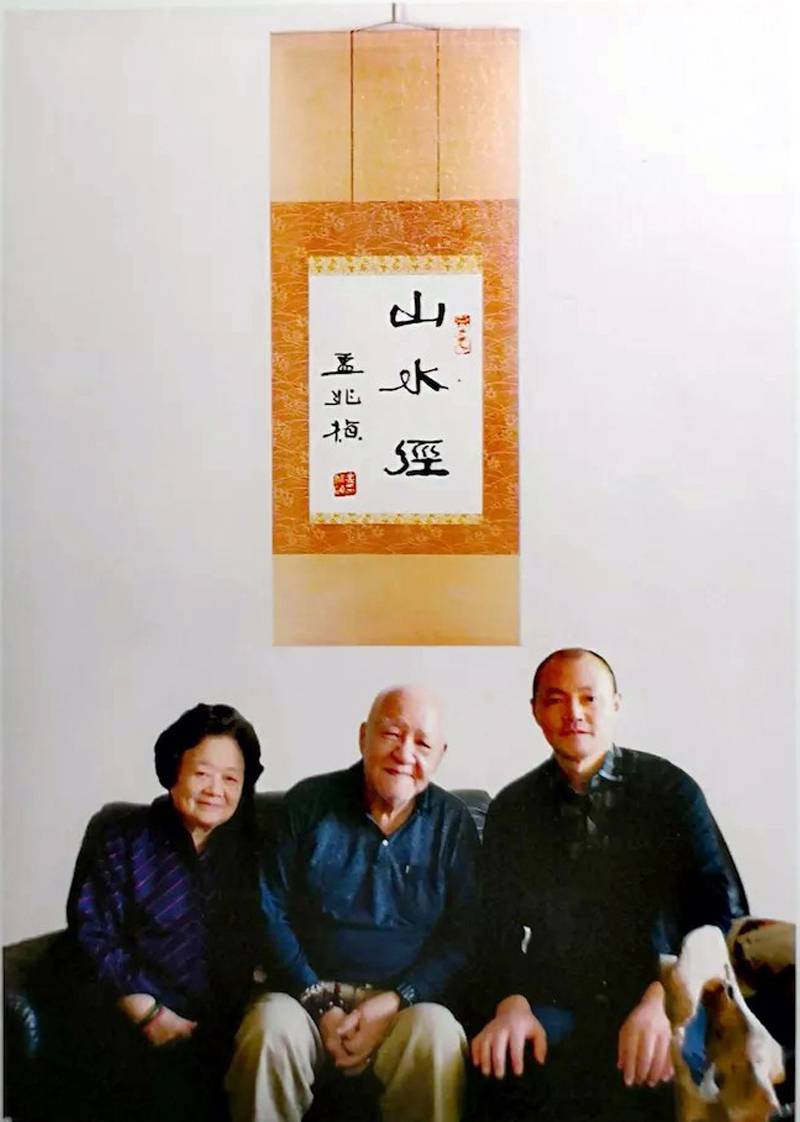 山水經
孟兆楨